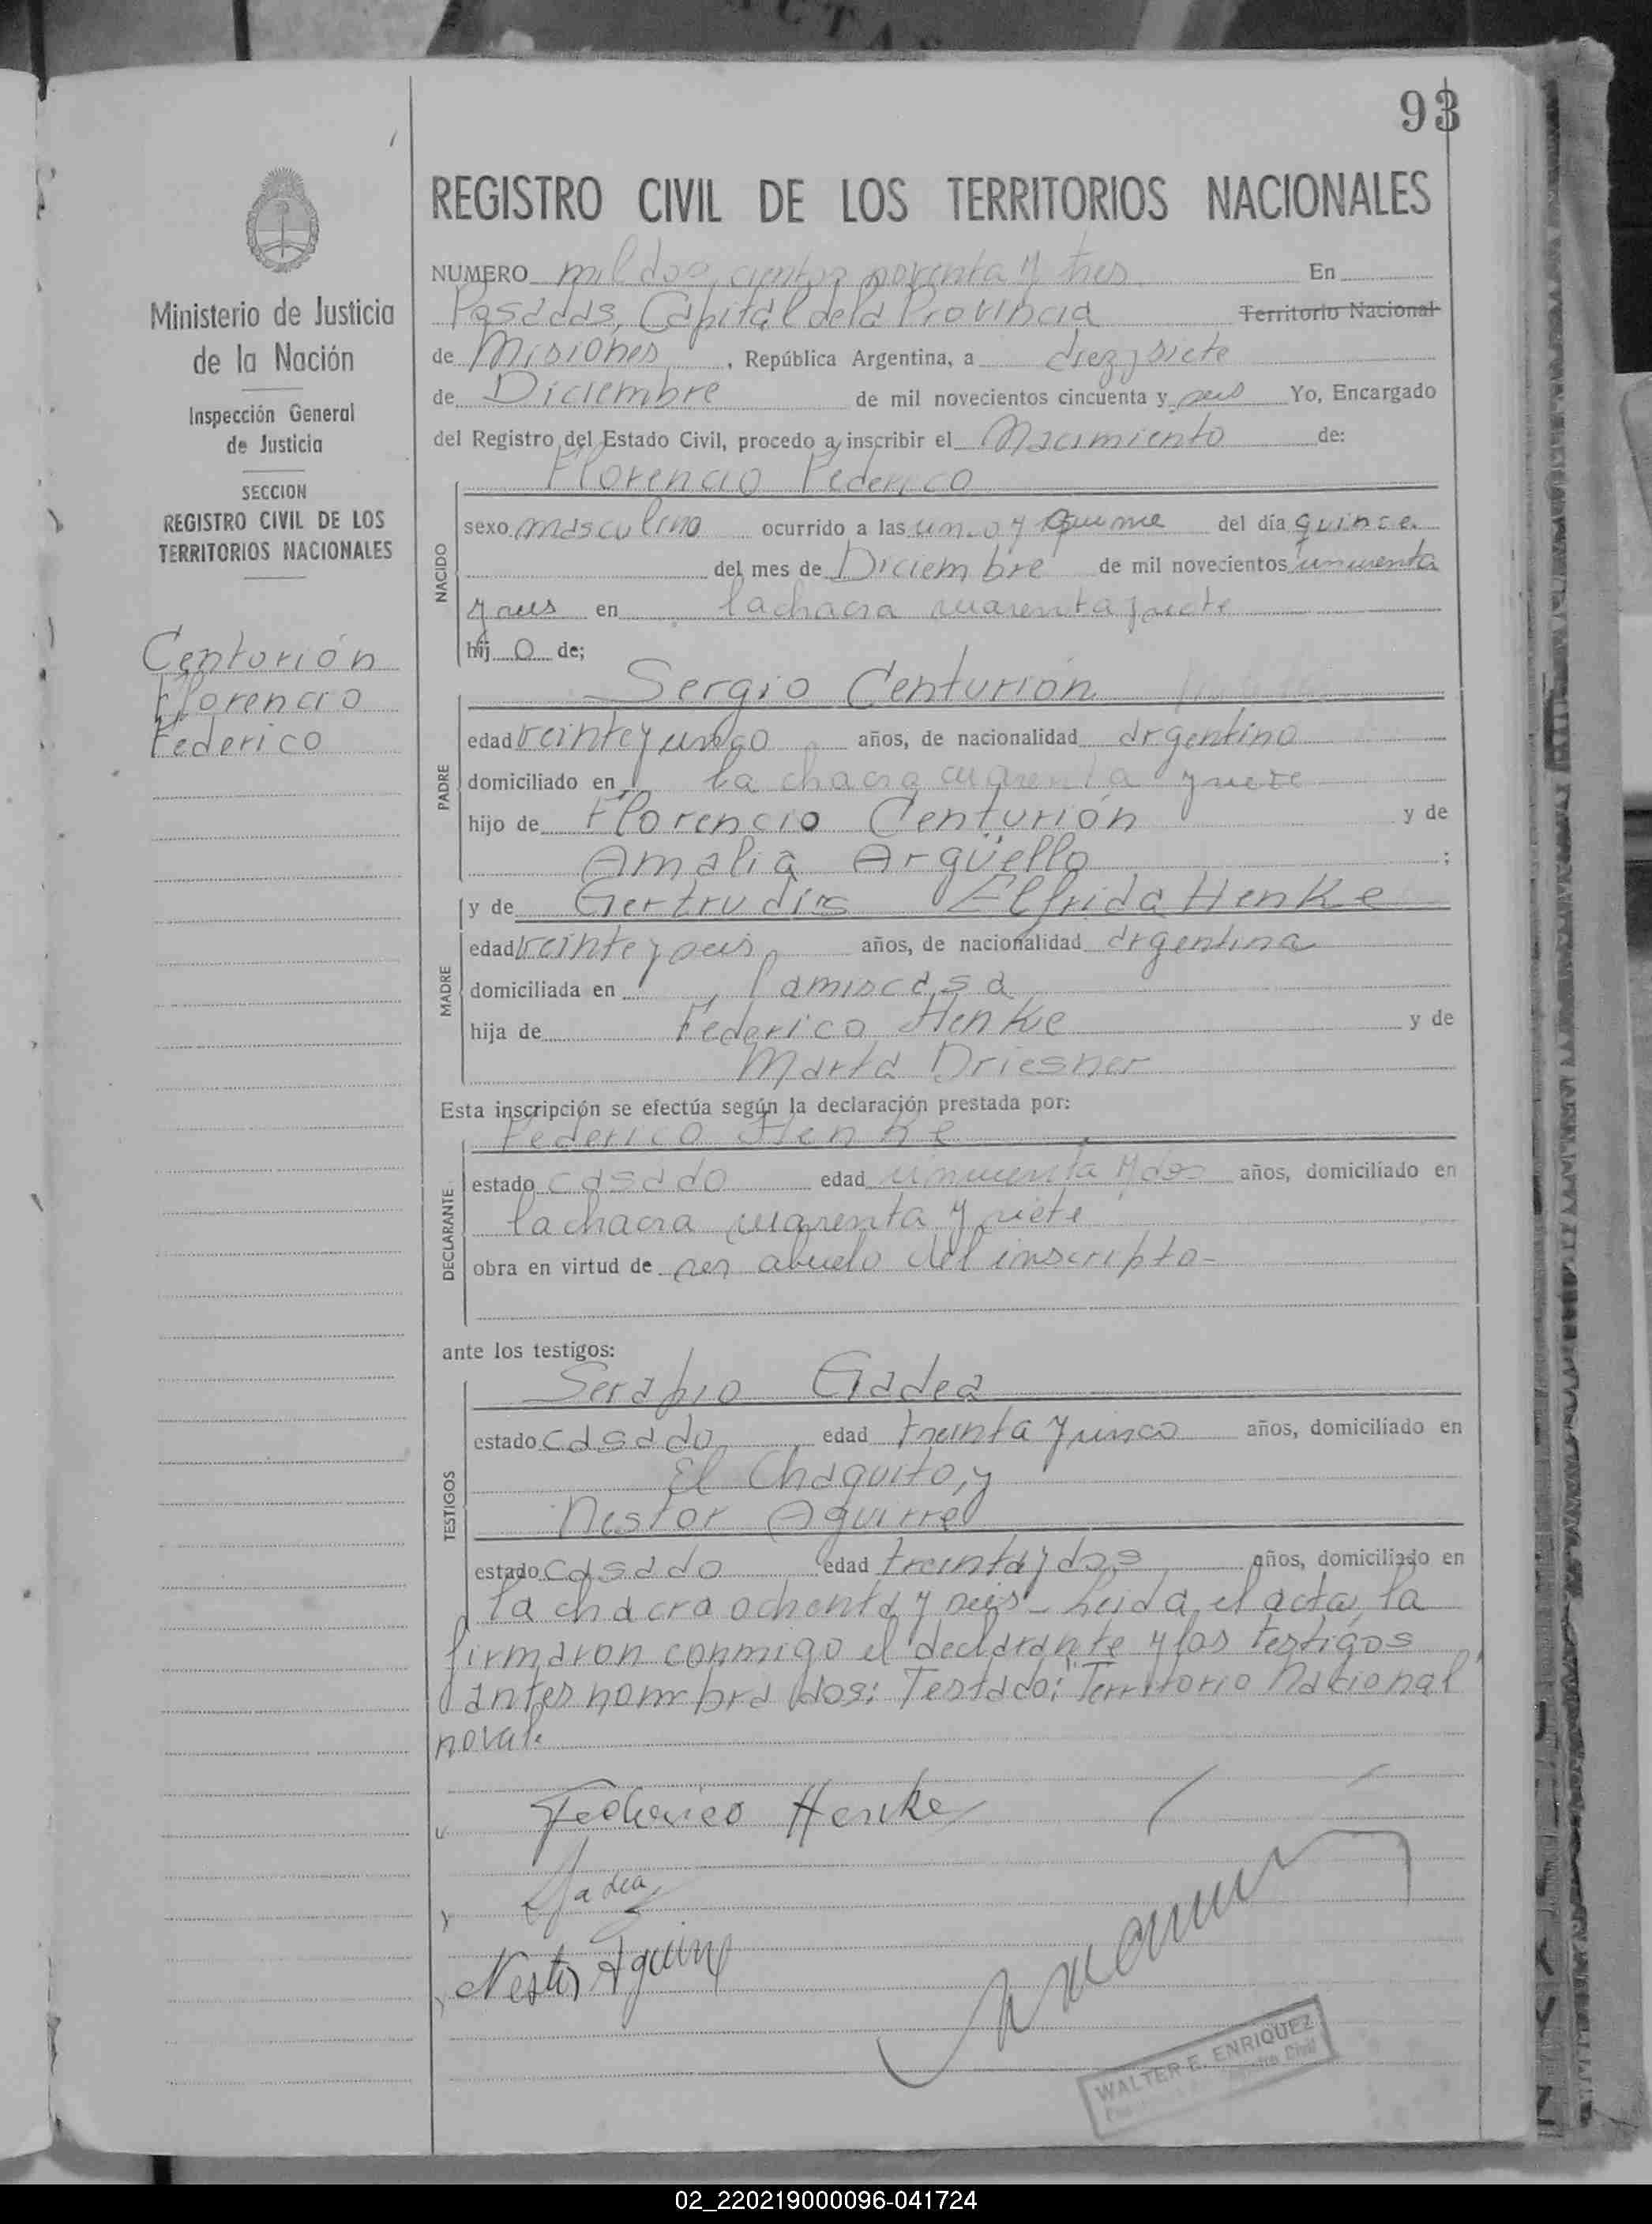 93
REGISTRO CIVIL DE LOS TERRITORIOS NACIONALES
NUMERO mil dos cientos noventa y tres En
Posadas, Capital de la Provincia Territorio Nacional
de Misiones, República Argentina, a diez y siete
de Diciembre de mil novecientos cincuenta y seis Yo, Encargado
del Registro del Estado Civil, procedo a inscribir el Nacimiento de:
Ministerio de Justicia
de la Nación
Inspección General
de Justicia
SECCION
REGISTRO CIVIL DE LOS
TERRITORIOS NACIONALES
Centurión
Florencio
Federico
NACIDO
Florencio Federico
sexo masculino ocurrido a las uno y quince del día quince
del mes de Diciembre de mil novecientos cincuenta
y seis en la chacra cuarenta y siete
hij o de;
PADRE
Sergio Centurión
edad veinte y cinco años, de nacionalidad argentino
domiciliado en la chacra cuarenta y siete
hijo de Florencio Centurión y de
Amalia Argüello ;
MADRE
y de Gertrudis Elfrida Henke
edad veinte y seis años, de nacionalidad argentina
domiciliada en la misma casa
hija de Federico Henke y de
Marta Driesner
Esta inscripción se efectúa según la declaración prestada por:
DECLARANTE
Federico Henke
estado casado edad cincuenta y dos años, domiciliado en
la chacra cuarenta y siete
obra en virtud de ser abuelo del inscripto-
ante los testigos:
TESTIGOS
Serapio Gadea
estado casado edad treinta y cinco años, domiciliado en
El Chaquito, y
Nestor Aguirre
estado casado edad treinta y dos años, domiciliado en
la chacra ochenta y seis - Leida el acta, la
firmaron conmigo el declarante y los testigos
antes nombrados: Testado: "Territorio Nacional"
no vale.
Federico Henke
Gadea
Nestor Aguirre
WALTER E. ENRIQUEZ
Registro Civil
02_220219000096-041724